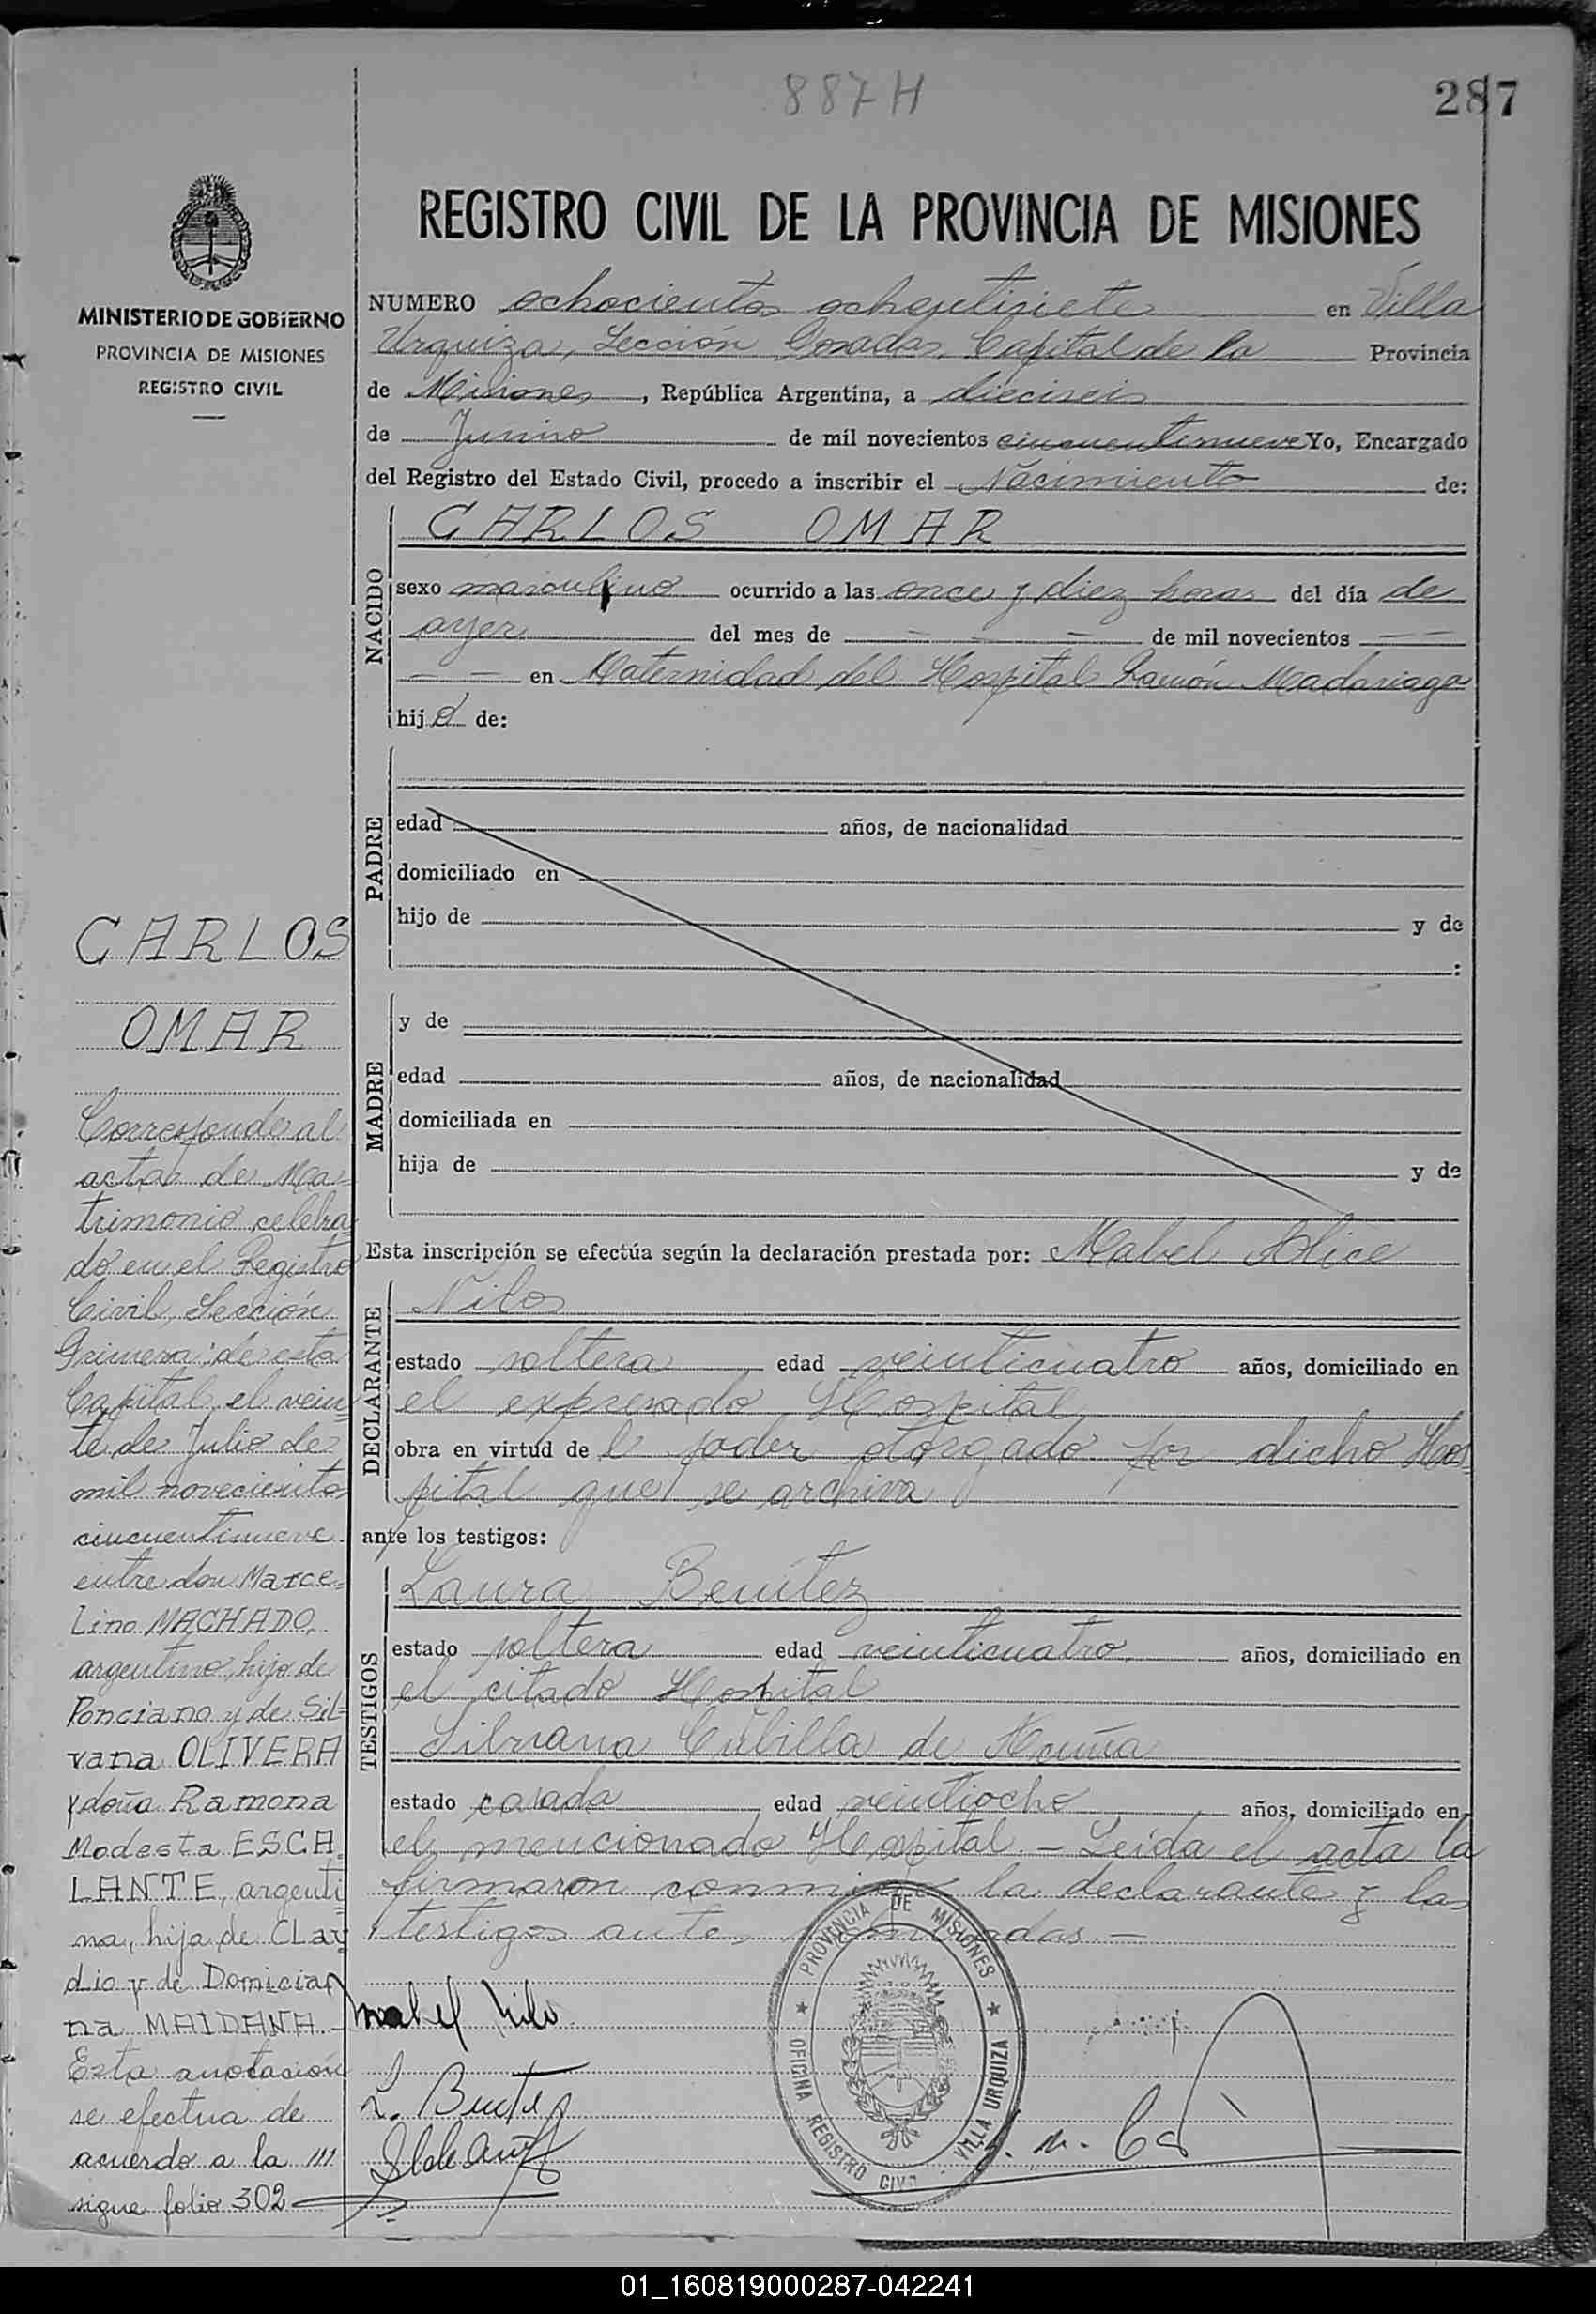 887 H
287
MINISTERIO DE GOBIERNO
PROVINCIA DE MISIONES
REGISTRO CIVIL
REGISTRO CIVIL DE LA PROVINCIA DE MISIONES
NUMERO ochocientos ochentisiete en Villa
Urquiza, Sección Posadas, Capital de la Provincia
de Misiones, República Argentina, a dieciseis
de Junio de mil novecientos cincuentinueve Yo, Encargado
del Registro del Estado Civil, procedo a inscribir el Nacimiento de:
NACIDO
CARLOS OMAR
sexo masculino ocurrido a las once y diez horas del día de
ayer del mes de — — — de mil novecientos — —
— — en Maternidad del Hospital Ramón Madariaga
hijo de:
PADRE
edad años, de nacionalidad
domiciliado en
hijo de y de
:
MADRE
y de
edad años, de nacionalidad
domiciliada en
hija de y de
Esta inscripción se efectúa según la declaración prestada por: Mabel Alice
DECLARANTE
Nilos
estado soltera edad veinticuatro años, domiciliado en
el expresado Hospital
obra en virtud de l poder otorgado por dicho Hos
pital que se archiva
ante los testigos:
TESTIGOS
Laura Benítez
estado soltera edad veinticuatro años, domiciliado en
el citado Hospital
Silvana Cubilla de Acuña
estado casada edad veintiocho años, domiciliado en
el mencionado Hospital. — Leída el acta la
firmaron conmigo la declarante y las
testigos ante
CARLOS
OMAR
Corresponde al
acta de Ma=
trimonio celebra
do en el Registro
Civil, Sección
Primera de esta
Capital, el vein=
te de Julio de
mil novecientos
cincuentinueve
entre don Marce=
lino MACHADO,
argentino, hijo de
Ponciano y de Sil=
vana OLIVERA
y doña Ramona
Modesta ESCA
LANTE, argenti
na, hija de CLau
dio y de Domicia
na MAIDANA.—
Esta anotación
se efectua de
acuerdo a la ///
sigue folio 302
Mabel Nilo
L. Benitez
PROVINCIA DE MISIONES
OFICINA REGISTRO CIVIL - VILLA URQUIZA
01_160819000287-042241